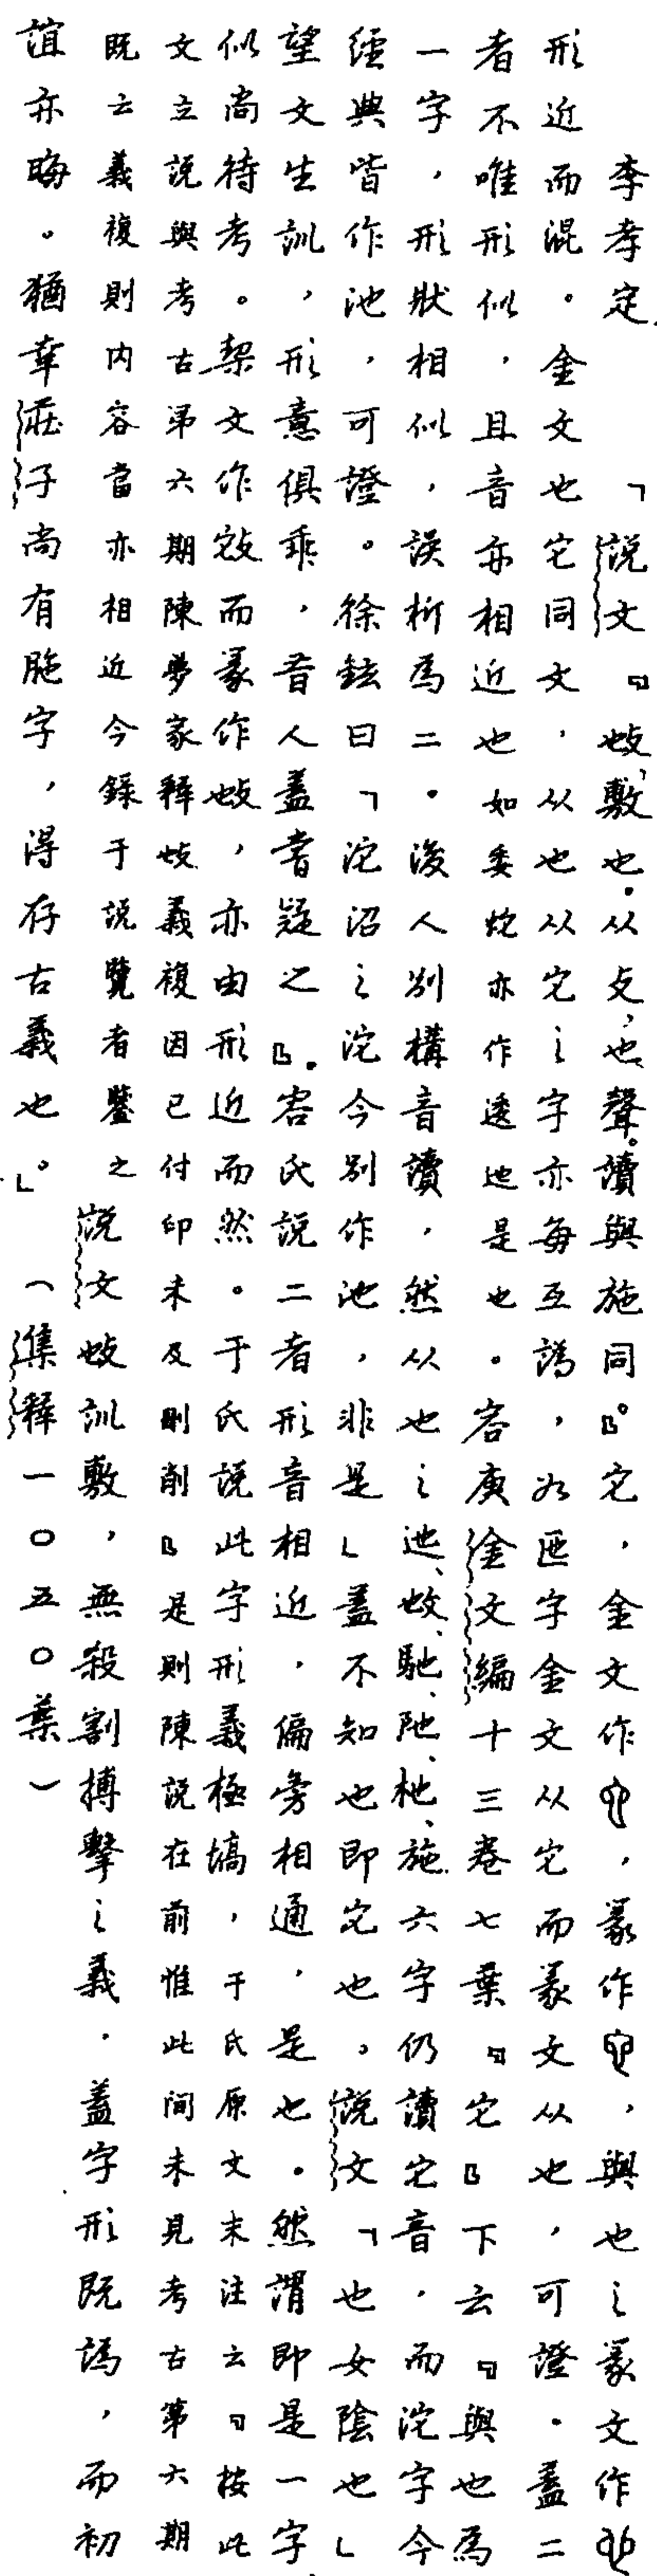 李孝定　「說文『𢻱、敷也。从攴、也聲。讀與施同』。它，金文作，篆作，與也之篆文作
形近而混。金文也它同文，从也从它之字亦每互譌，如匜字金文从它而篆文从也，可證。蓋二
者不唯形似，且音亦相近也如委佗亦作逶迤是也。容庚金文編十三卷七葉『它』下云『與也為
一字，形狀相似，誤析為二。後人別構音讀，然从也之迆、𢻱、馳、阤、杝、施六字仍讀它音，而沱字今
經典皆作池，可證。徐鉉曰「沱沼之沱今別作池，非是」蓋不知也即它也，說文「也女陰也」
望文生訓，形意俱乖，昔人蓋嘗疑之』。容氏說二者形音相近，偏旁相通，是也。然謂即是一字
似尚待考。栔文作㪇而篆作𢻱，亦由形近而然。于氏說此字形義極塙，于氏原文末注云『按此
文立說與考古第六期陳夢家釋𢻱義複因已付印未及刪削』是則陳說在前惟此間未見考古第六期
既云義複則內容當亦相近今錄于說覽者鑒之　說文𢻱訓敷，無殺割搏擊之義。蓋字形既譌，而初
誼亦晦。猶幸莊子尚有胣字，得存古義也」。　（集釋一〇五〇葉）